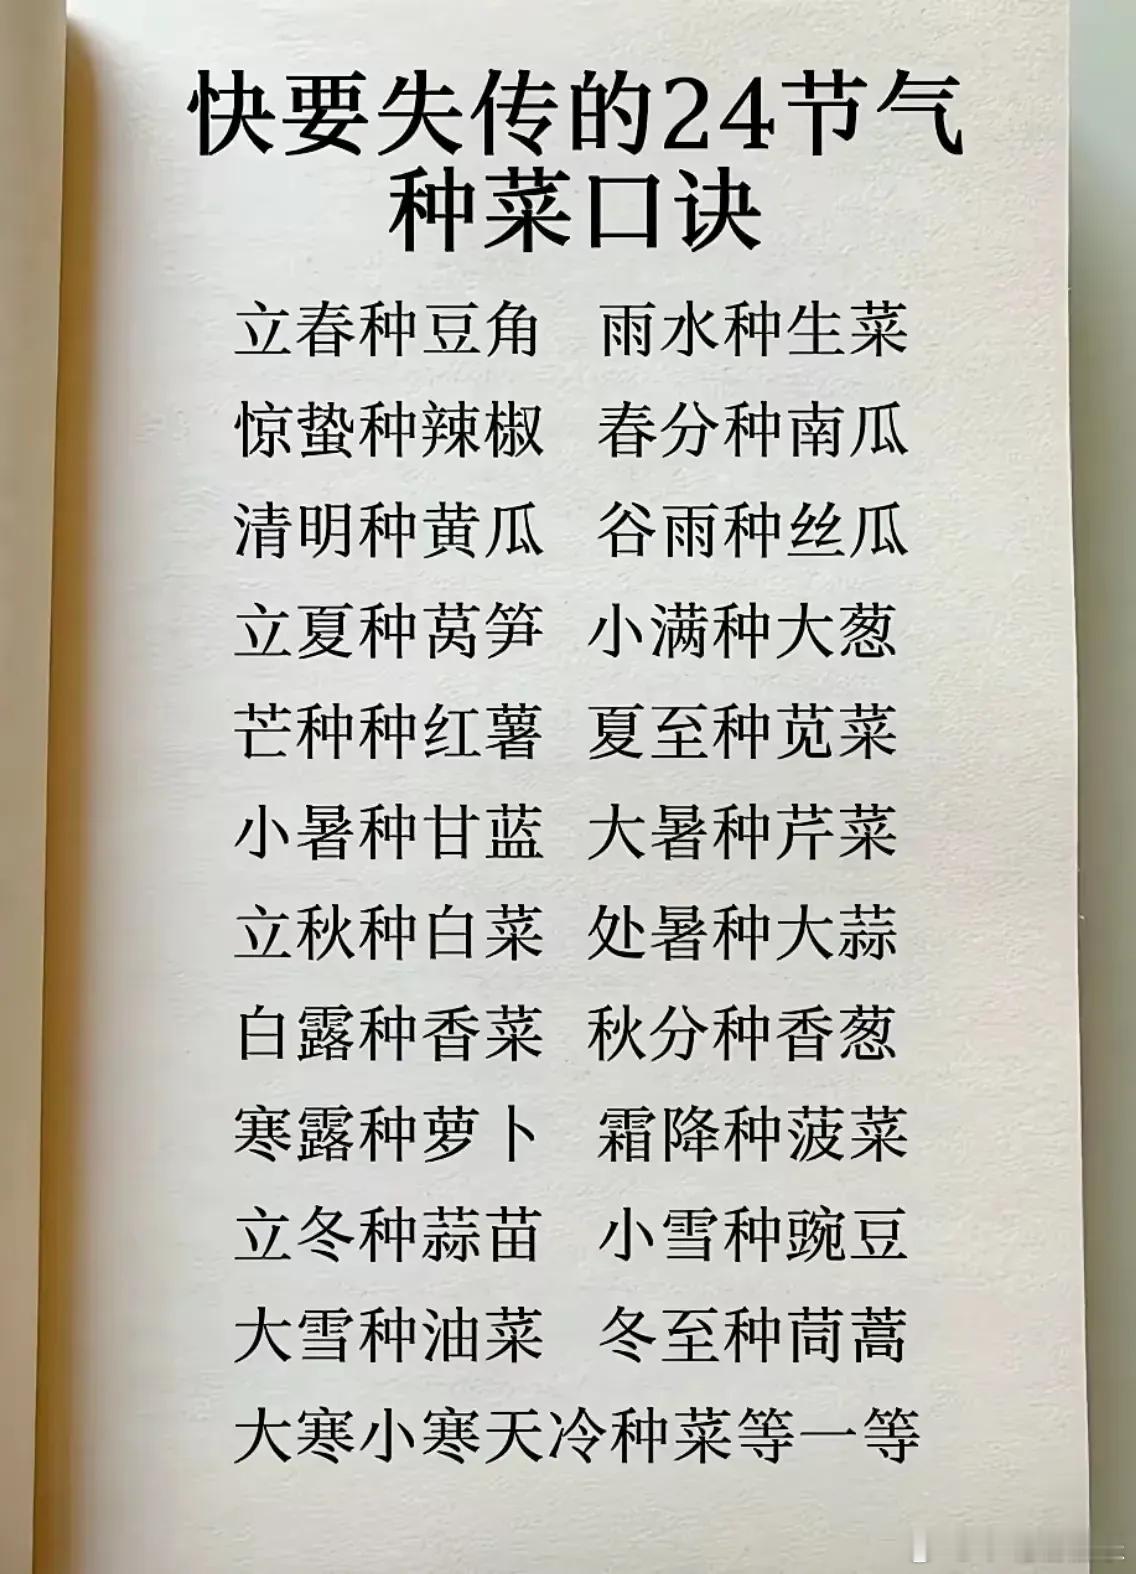 快要失传的24节气
种菜口诀
立春种豆角 雨水种生菜
惊蛰种辣椒 春分种南瓜
清明种黄瓜 谷雨种丝瓜
立夏种莴笋 小满种大葱
芒种种红薯 夏至种苋菜
小暑种甘蓝 大暑种芹菜
立秋种白菜 处暑种大蒜
白露种香菜 秋分种香葱
寒露种萝卜 霜降种菠菜
立冬种蒜苗 小雪种豌豆
大雪种油菜 冬至种茼蒿
大寒小寒天冷种菜等一等